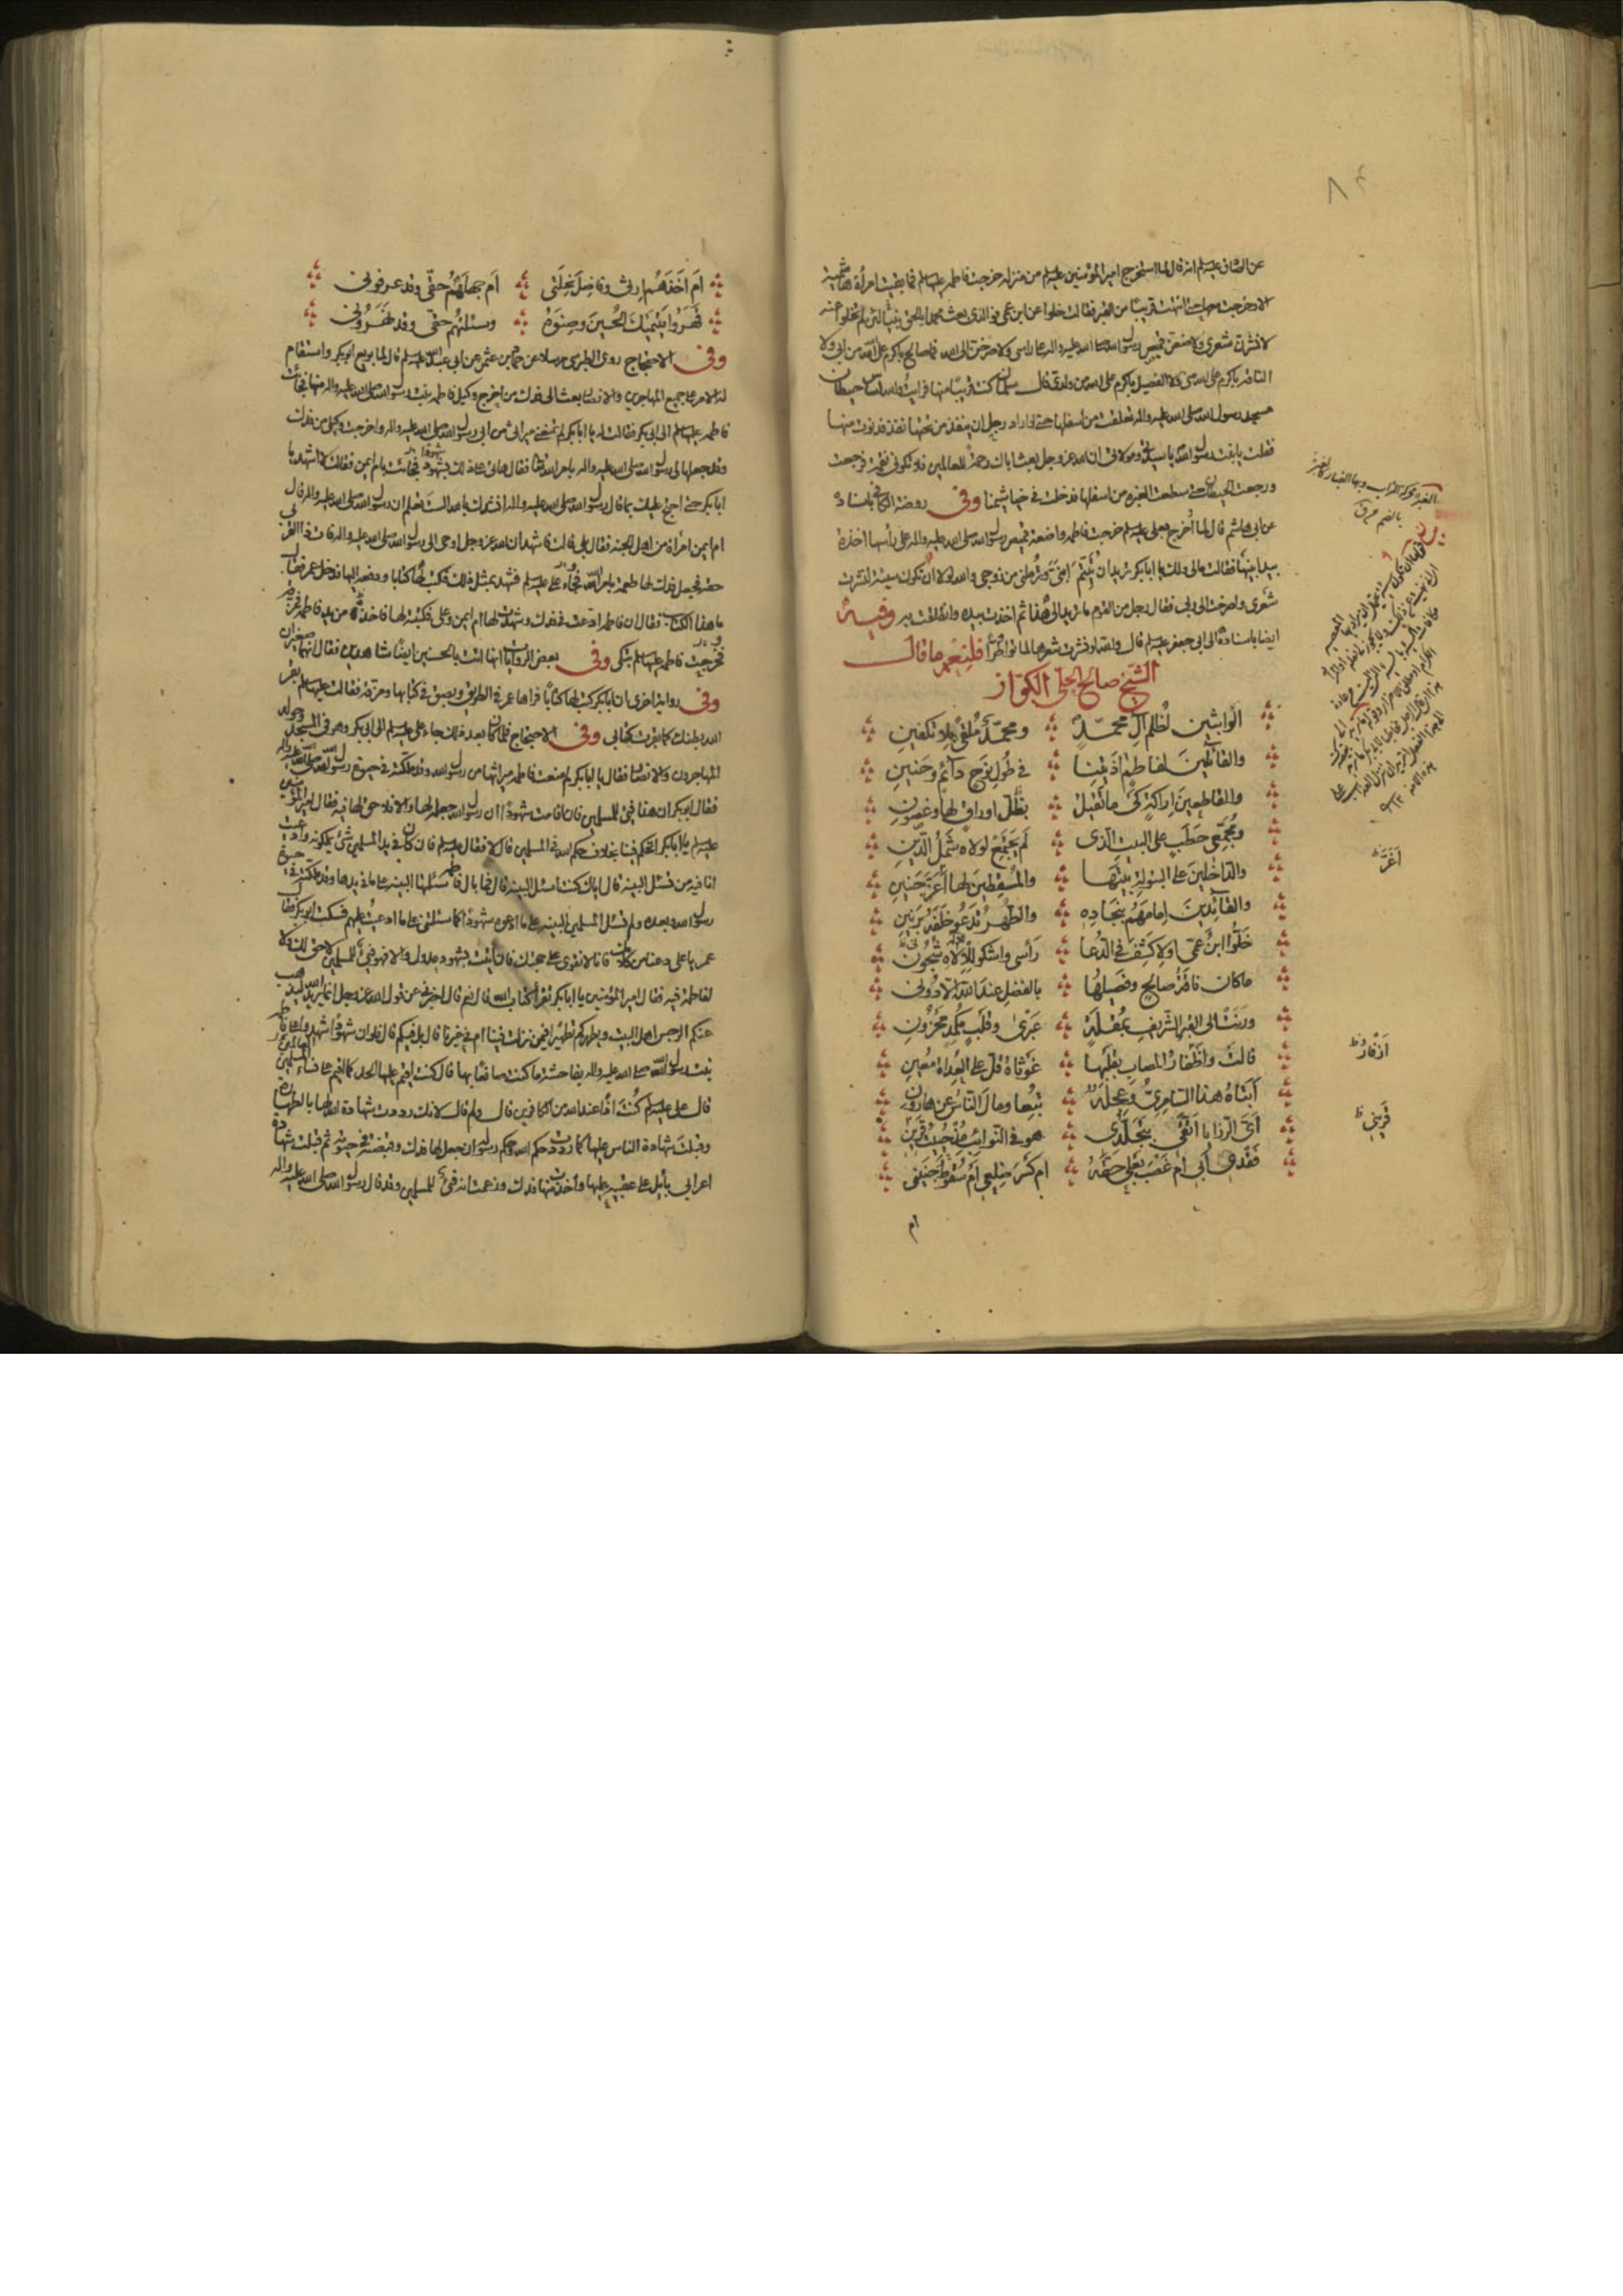 عن الصادق عليه السلام انه قال لما استخرج امير المؤمنين عليه السلام من منزله خرجت فاطمه عليها السلام فما بقيت امرأة هاشمية
الا خرجت معها حتى انتهت قريبًا من القبر فقالت خلوا عن ابن عمي فو الذي بعث محمدا بالحق لئن لم تخلوا عنه
لانشرن شعري ولاضعن قميص رسول الله صلى الله عليه واله على راسي ولاصرخن الى الله فما صالح باكرم على الله من ابي ولا
الناقه باكرم على الله مني ولا الفصيل باكرم على الله من ولدي قال سلمان كنت قريبًا منها فرايت والله اساس حيطان
مسجد رسول الله صلى الله عليه واله تقلعت من اسفلها حتى لو اراد رجل ان ينفذ من تحتها نفذ فدنوت منها
فقلت يا بنت رسول الله يا سيدتي ومولاتي ان الله عز وجل بعث اباك رحمة للعالمين فلا تكوني نقمه فرجعت
ورجعت الحيطان حتى سطعت الغبره من اسفلها فدخلت في خياشيمنا وفي روضة الكافي باسناده
عن ابي هاشم قال لما اُخرج بعلي عليه السلام خرجت فاطمه واضعة قميص رسول الله صلى الله عليه واله على رأسها اخذة
بيدي ابنيها فقالت مالي ولك يا ابا بكر تريد ان تُيَتِّمَ ابنَيَّ وترملني من زوجي والله لولا ان تكون سيئة لنشرت
شعري ولصرخت الى ربي فقال رجل من القوم ما تريد الى هذا ثم اخذت بيده وانطلقت به وفيه
ايضا باسناده الى ابي جعفر عليه السلام قال والله لو نشرت شعرها لماتوا طرًا فلنعم ما قال
الشيخ صالح الحلي الكواز
الواثبين لظلم آل محمد ومحمد ملقى بلا تكفين
والقائلين لفاطم اذيتنا في طول نوح دائم وحنين
والقاطعين اراكة كي ما تقيل بظل اوراق لها وغصون
ومجمعي حطب على البيت الذي لم يجتمع لولاه شمل الدين
والداخلين على البتولة بيتها والمسقطين لها أعز جنين
والقائدين امامهم بنجاده والطهر تدعو خلفه برنين
خلوا ابن عمي او لاكشف في الدعا رأسي واشكو للاله شجوني
ما كان ناقة صالح وفصيلها بالفضل عند الله الا دوني
ورنت الى القبر الشريف بمقلة عبرى وقلب مكمد محزون
قالت واظفار المصاب بقلبها غوثاه قل على العداة معين
أبتاه هذا السامري وعجله تبعا ومال الناس عن هارون
أي الرزايا اتقي بتجلدي هو في النوائب مذ حييت قرين
فقدي أبي ام غصب بعلي حقه ام كسر ضلعي ام سقوط جنيني
ام
أغَرّ
قريني
ام اخذهم ارثي وفاضل نحلتي ام جهلهم حقي وقد عرفوني
قهروا يتيميك الحسين وصنوه وسئلتهم حقي وقد نهروني
وفي الاحتجاج روى الطبرسي مرسلا عن حماد بن عثمن عن ابي عبد الله عليه السلام قال لما بويع ابو بكر واستقام
له الامر على جميع المهاجرين والانصار بعث الى فدك من اخرج وكيل فاطمه بنت رسول الله صلى الله عليه واله منها فجائت
فاطمه عليها السلام الى ابي بكر فقالت له يا ابا بكر لم تمنعني ميراثي من ابي رسول الله صلى الله عليه واله واخرجت وكيلي من فدك
وقد جعلها لي رسول الله صلى الله عليه واله بامر الله تعالى فقال هاتي على ذلك بشهود فجائت بام ايمن فقالت لا اشهد يا
ابا بكر حتى احتج عليك بما قال رسول الله صلى الله عليه واله انشدك بالله الست تعلم ان رسول الله صلى الله عليه واله قال
ام ايمن امرأة من اهل الجنه فقال بلى قالت فاشهد ان الله عز وجل اوحى الى رسول الله صلى الله عليه واله فات ذا القربى
حقه فجعل فدك لها طعمة بامر الله فجاء علي عليه السلام فشهد بمثل ذلك فكتب لها كتابا ودفعه اليها فدخل عمر فقال
ما هذا الكتاب فقال ان فاطمه ادعت في فدك وشهدت لها ام ايمن وعلي فكتبته لها فاخذه من يد فاطمه فمزقه
فخرجت فاطمه عليها السلام تبكي وفي بعض الروايات انها اتت بالحسنين ايضًا شاهدين فقال انهما صغيران
وفي رواية اخرى ان ابا بكر كتب لها كتابًا فراها عمر في الطريق وبصق في كتابها ومزقه فقالت عليها السلام بقر
الله بطنك كما بقرت كتابي وفي الاحتجاج فلما كان بعد ذلك جاء علي عليه السلام الى ابي بكر وهو في المسجد وحوله
المهاجرون والانصار فقال يا ابا بكر لم منعت فاطمه ميراثها من رسول الله وقد ملكته في حيوة رسول الله صلى الله عليه واله
فقال ابو بكر ان هذا فيئ للمسلمين فان اقامت شهودًا ان رسول الله جعله لها والا فلا حق لها فيه فقال امير المؤمنين
عليه السلام يا ابا بكر اتحكم فينا بخلاف حكم الله في المسلمين قال لا فقال عليه السلام فان كان في يد المسلمين شئ يملكونه وادعيت
انا فيه من تسئل البينه قال اياك كنت اسئل البينه قال فما بال فاطمه سئلتها البينه على ما في يدها وقد ملكته في حيوة
رسول الله وبعده ولم تسئل المسلمين البينه على ما ادعوه شهودًا كما سئلتني على ما ادعيت عليهم فسكت ابو بكر فقال
عمر يا علي دعنا من كلامك فانا لا نقوى على حجتك فان اتيت بشهود عدول والا فهو فيئ للمسلمين لا حق لك ولا
لفاطمة فيه فقال امير المؤمنين يا ابا بكر تقرأ كتاب الله قال نعم قال اخبرني عن قول الله عز وجل انما يريد الله ليذهب
عنكم الرجس اهل البيت ويطهركم تطهيرا فيمن نزلت فينا ام في غيرنا قال بل فيكم قال فلو ان شهودًا شهدوا على فاطمه
بنت رسول الله صلى الله عليه واله بفاحشة ما كنت صانعًا بها قال كنت اقيم عليها الحد كما اقيم على نساء المسلمين
قال علي عليه السلام كنت اذًا عند الله من الكافرين قال ولم قال لانك رددت شهادة الله لها بالطهارة
وقبلت شهادة الناس عليها كما رددت حكم الله وحكم رسوله ان جعل لها فدك وقبضته في حيوته ثم قبلت شهادة
اعرابي بائل على عقبيه عليها واخذت منها فدك وزعمت انه فيئ للمسلمين وقد قال رسول الله صلى الله عليه واله